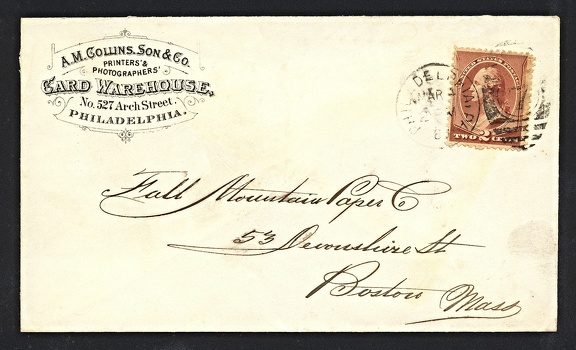 A. M. Collins, Son & Co.
PRINTERS' &
PHOTOGRAPHERS'
CARD WAREHOUSE,
No. 527 Arch Street.
PHILADELPHIA.
UNITED STATES POSTAGE
TWO 2 CENTS
Fall Mountain Paper C
53 Devonshire St
Boston Mass